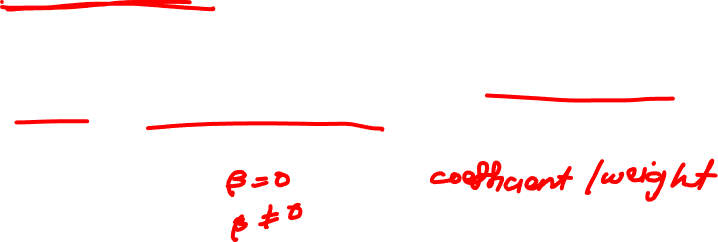 β = 0
β ≠ 0
coefficient / weight